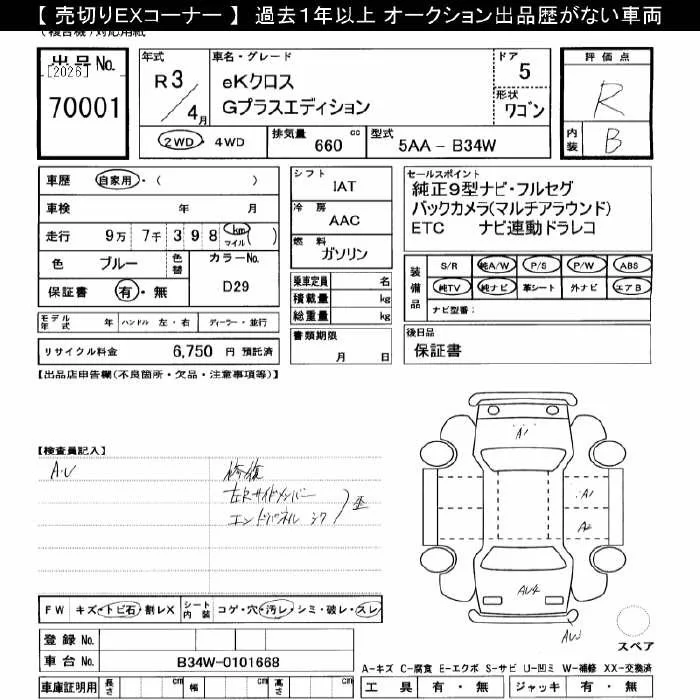 【 売切りEXコーナー 】 過去1年以上 オークション出品歴がない車両
出品No.
[2026]
70001
年式
R 3/4月
車名・グレード
eKクロス
Gプラスエディション
ドア
5
形状
ワゴン
2WD・4WD
排気量 660 cc
型式 5AA - B34W
評価点
R
内装 B
車歴 自家用・( )
車検 年 月
走行 9万 7千 3 9 8 km マイル ( )
色 ブルー 色替
カラーNo.
D29
保証書 有・無
シフト
IAT
冷房
AAC
燃料
ガソリン
乗車定員 名
積載量 kg
総重量 kg
書類期限
月 日
セールスポイント
純正9型ナビ・フルセグ
バックカメラ(マルチアラウンド)
ETC ナビ連動ドラレコ
装備品
S/R 純A/W P/S P/W ABS
純TV 純ナビ 革シート 外ナビ エアB
ナビ型番:
後日品
保証書
モデル年式 年 ハンドル 左・右 ディーラー・並行
リサイクル料金 6,750 円 預託済
【出品店申告欄(不良箇所・欠品・注意事項等)】
【検査員記入】
A・U
修復
左Rサイドメンバー
エンドパネル
A1
A1
A2
AU4
AW
FW キズ・トビ石・割レX
シート内装 コゲ・穴・汚レ・シミ・破レ・スレ
登録 No.
車台 No. B34W-0101668
車庫証明用 長さ cm 幅 cm 高さ cm
スペア
A-キズ C-腐食 E-エクボ S-サビ U-凹ミ W-補修 XX-交換済
工具 有・無 ジャッキ 有・無